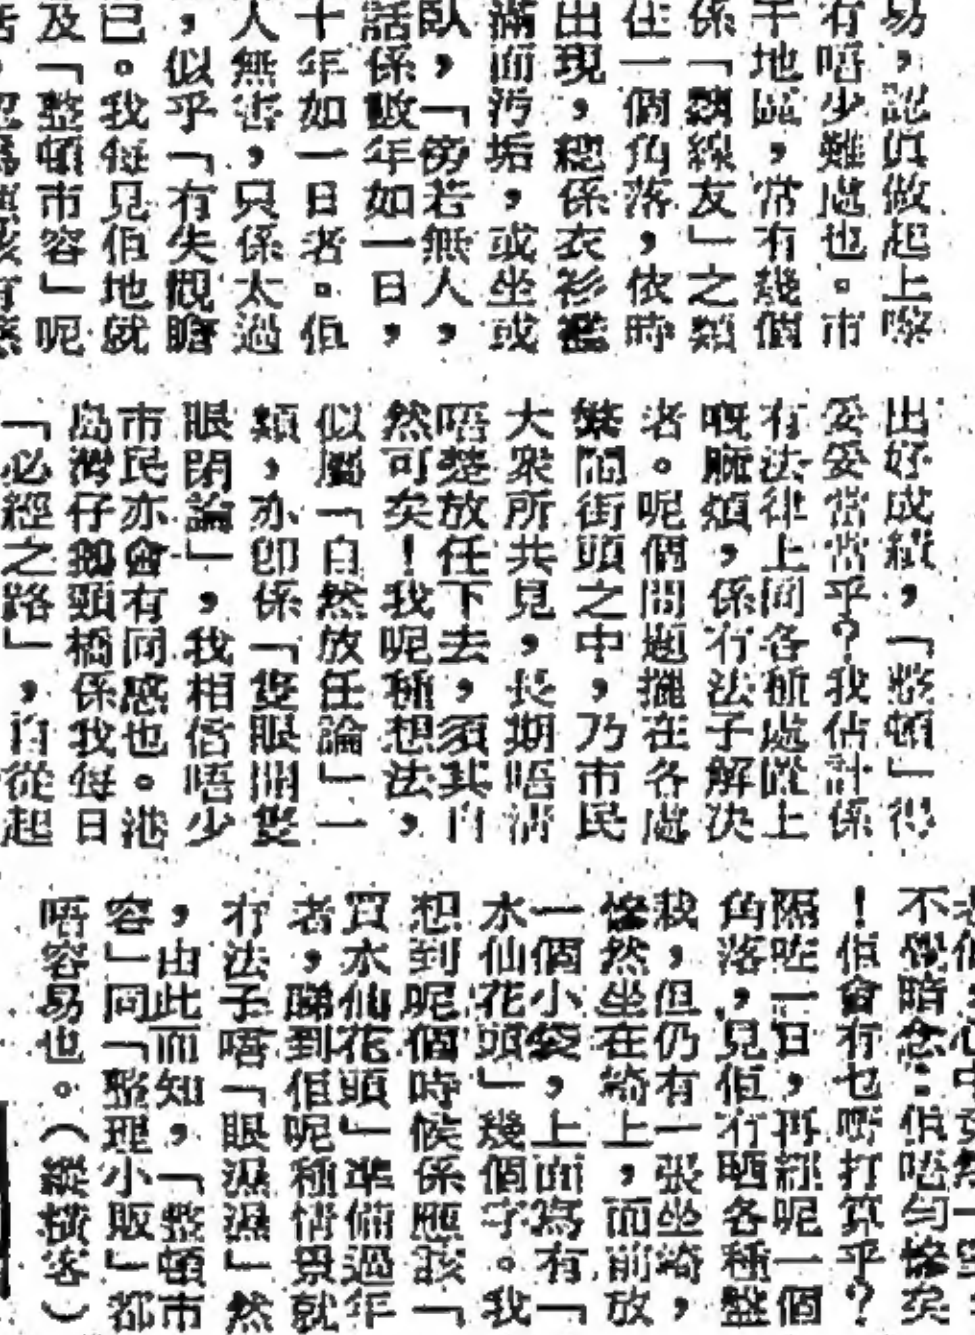 易，認真做起上嚟
有唔少難處也。市
干地區，常有幾個
係「黐線友」之類
住一個角落，依時
出現，總係衣衫襤
滿面污垢，或坐或
臥，「傍若無人，
話係數年如一日，
十年如一日者。佢
人無害，只係太過
，似乎「有失觀瞻
已。我每見佢地就
及「整頓市容」呢
出好成績，「整頓」得
妥妥當當乎？我估計係
有法律上同各種處置上
嘅麻煩，係冇法子解決
者。呢個問題擺在各處
繁鬧街頭之中，乃市民
大衆所共見，長期唔清
唔楚放任下去，須其自
然可矣！我呢種想法，
似屬「自然放任論」一
類，亦卽係「隻眼開隻
眼閉論」，我相信唔少
市民亦會有同感也。港
島灣仔鵝頸橋係我每日
「必經之路」，自從起
不覺暗念：佢唔勻慘矣
！佢會有乜嘢打算乎？
隔咗一日，再經呢一個
角落，見佢冇晒各種盤
栽，但仍有一張坐椅，
慘然坐在椅上，而前放
一個小袋，上面寫有「
水仙花頭」幾個字。我
想到呢個時候係應該「
買水仙花頭」準備過年
者，睇到佢呢種情景就
冇法子唔「眼濕濕」然
，由此而知，「整頓市
容」同「整理小販」都
唔容易也。（縱橫客）